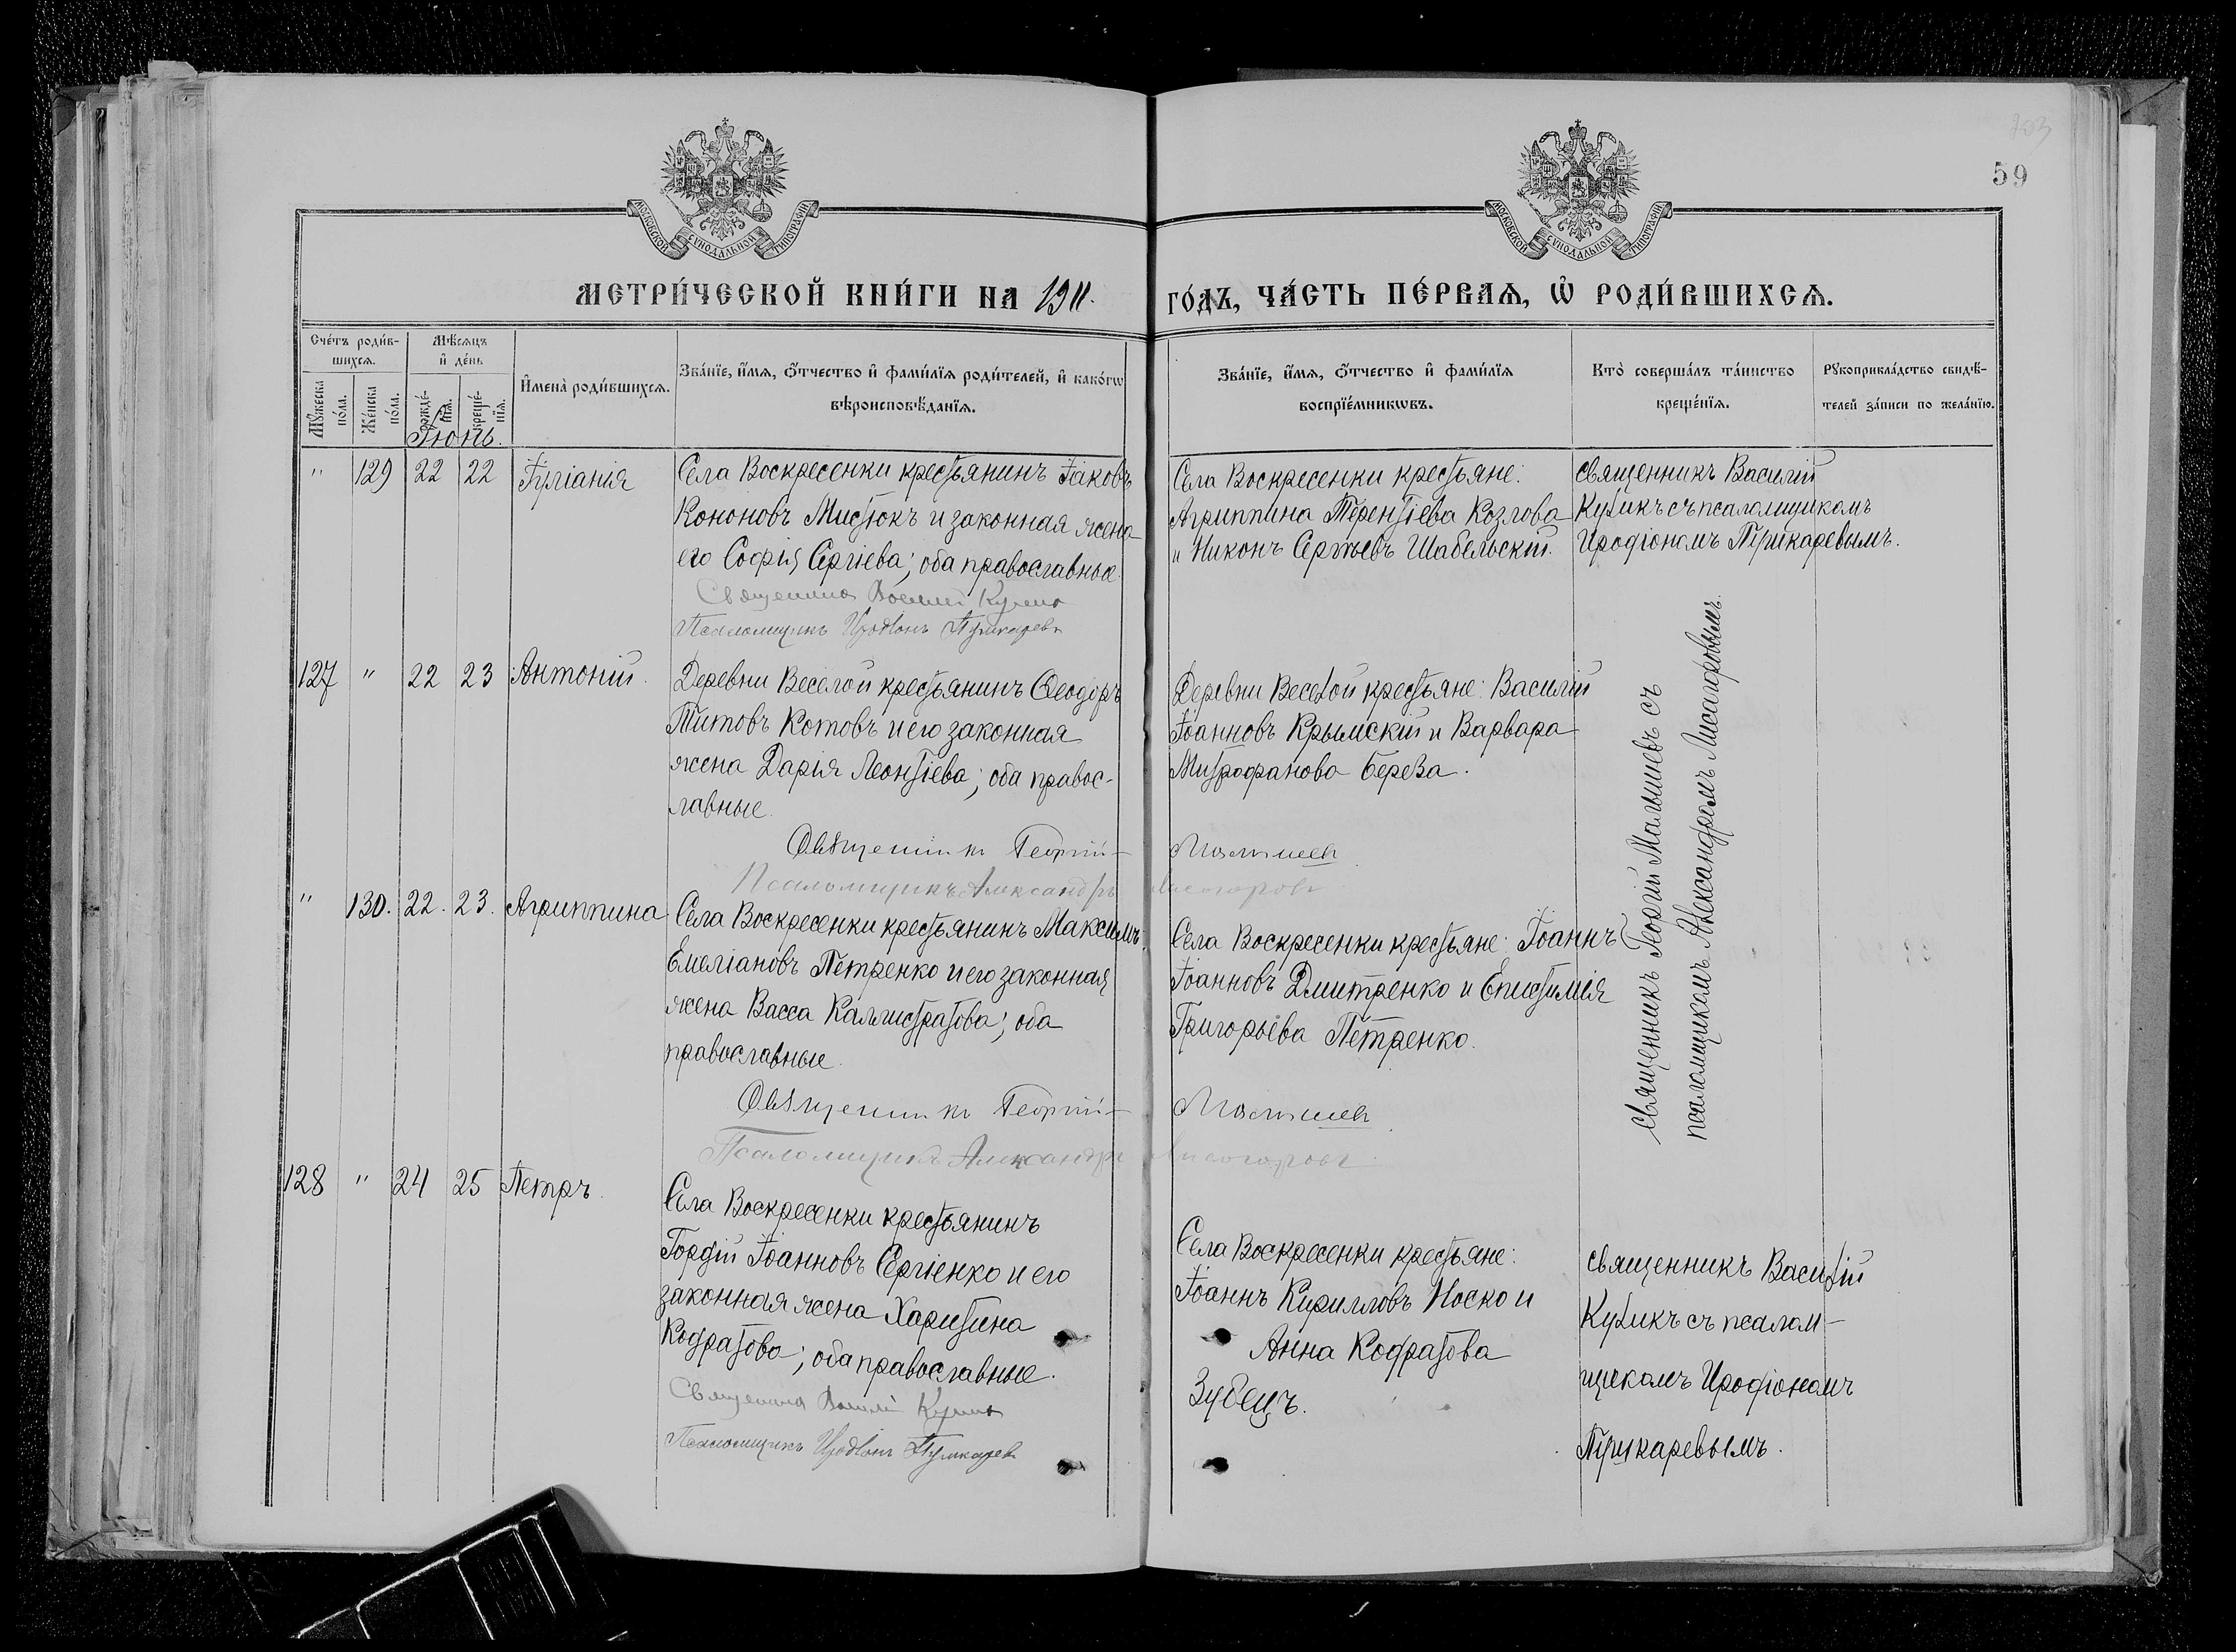 59
МОСКОВСКОЙ СѴНОДАЛЬНОЙ ТИПОГРАФІИ
МОСКОВСКОЙ СѴНОДАЛЬНОЙ ТИПОГРАФІИ
МЕТРИ́ЧЕСКОЙ КНИ́ГИ НА 1911. ГО́ДЪ, ЧА́СТЬ ПЕ́РВАѦ, Ѡ҆ РОДИ́ВШИХСѦ.
Сче́тъ роди́в-
шихсѧ.
Мꙋ́жеска
по́ла.
Же́нска
по́ла.
Мѣ́сѧцъ
и҆ де́нь
рожде́-
нїѧ.
креще́-
нїѧ.
Іюнь.
И҆мена̀ роди́вшихсѧ.
Зва́нїе, и҆́мѧ, ѻ҆́тчество и҆ фами́лїѧ роди́телей, и҆ како́гѡ
вѣроисповѣ́данїѧ.
Зва́нїе, и҆́мѧ, ѻ҆́тчество и҆ фами́лїѧ
воспрїе́мникѡвъ.
Кто̀ соверша́лъ та́инство
креще́нїѧ.
Рꙋкоприкла́дство свидѣ́-
телей за́писи по жела́нїю.
" 129 22 22 Іуліанія
Села Воскресенки крестьянинъ Іаковъ
Кононовъ Мистюкъ и законная жена
его Софія Сергіева; оба православные.
Священникъ Василий Кулик
Псаломщикъ Иродіонъ Пушкаревъ
Села Воскресенки крестьяне:
Агриппина Терентіева Козлова
и Никонъ Сергѣевъ Шабельскій.
священникъ Василій
Куликъ съ псаломщикомъ
Иродіономъ Пушкаревымъ.
127 " 22 23 Антоній.
Деревни Веселой крестьянинъ Ѳеодоръ
Титовъ Котовъ и его законная
жена Дарія Леонтіева; оба правос-
лавные.
Священникъ Георгій Малышевъ
Псаломщикъ Александръ Лисогоровъ
Деревни Веселой крестьяне: Василій
Іоанновъ Крымскій и Варвара
Митрофанова Береза.
священникъ Георгій Малышевъ съ
псаломщикомъ Александромъ Лисогоровымъ.
" 130. 22. 23. Агриппина
Села Воскресенки крестьянинъ Максимъ
Емеліановъ Петренко и его законная
жена Васса Каллистратова; оба
православные.
Священникъ Георгій Малышевъ
Псаломщикъ Александръ Лисогоровъ
Села Воскресенки крестьяне: Іоаннъ
Іоанновъ Дмитренко и Епистимія
Григорьева Петренко.
128 " 24 25 Петръ.
Села Воскресенки крестьянинъ
Гордій Іоанновъ Сергіенко и его
законная жена Харитина
Кодратова; оба православные.
Священникъ Василий Кулик
Псаломщикъ Иродіонъ Пушкаревъ
Села Воскресенки крестьяне:
Іоаннъ Кирилловъ Носко и
Анна Кодратова
Зубецъ.
священникъ Василій
Куликъ съ псалом-
щикомъ Иродіономъ
Пушкаревымъ.